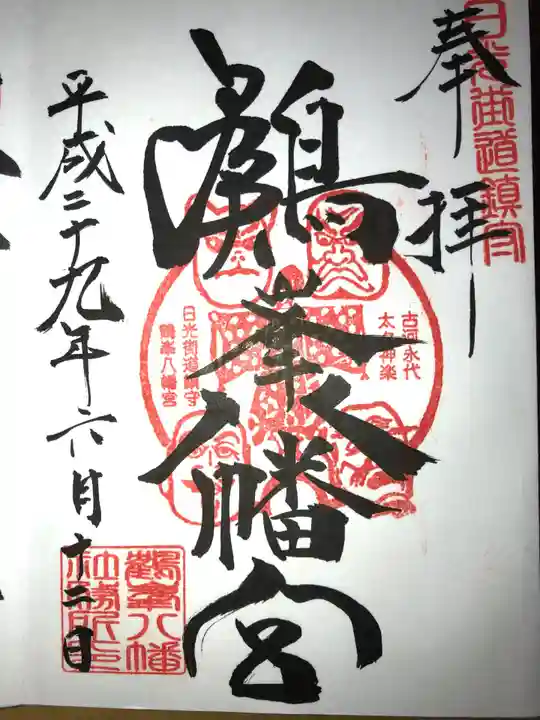 日光街道鎮守
奉拝
鶴峯八幡宮
古河永代
太々神楽
日光街道鎮守
鶴峯八幡宮
平成二十九年六月十二日
鶴峯八幡
社務所印